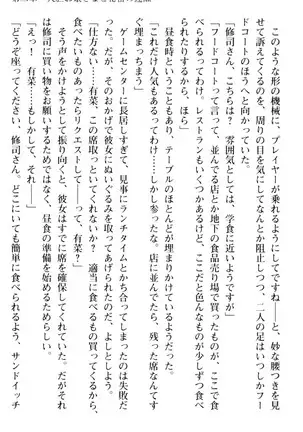 ような形の機械に、プレイヤーが乗れるようにしてですね――と、妙な腰つきを見
せて訴えてくるのを、周りの目を気にしてなんとか阻止しつつ、二人の足はいつしかフー
ドコートのほうへと向かっていた。
「修司さん、こちらは？　雰囲気としては、学食に近いようですが」
「フードコートって言って、並んでる店とか地下の食品売り場で買ったものが、ここで食
べられるわけ。レストランもいくつかあるけど、ここだと色んなものが少しずつ食べ
られたりするから、ほら」
　昼食時ということもあり、テーブルのほとんどが埋まりかけている。
「これだけ人気もあるってわけ……しかし参ったな。店に並んでたら、残った席なんてす
ぐ埋まっちまう」
　ゲームセンターに長居しすぎて、見事にランチタイムとかち合ってしまったのは失敗だ
った。だが、そのおかげで彼女にぬいぐるみを取ってあげられたのだ、よしとしよう。
「仕方ない……有菜、この席取っといてくれないか？　適当に食べるもの買ってくるから、
食べたいものあったらリクエストして――って、有菜？」
　そう声をかけようとして振り向くと、彼女はすでに席を確保してくれていた。だがそれ
は修司に買い物をお願いするためではなく、昼食の準備を始めるためらしい。
「えっ！　有菜……もしかして、それ――」
「どうぞ座ってください、修司さん。どこにいても簡単に食べられるよう、サンドイッチ